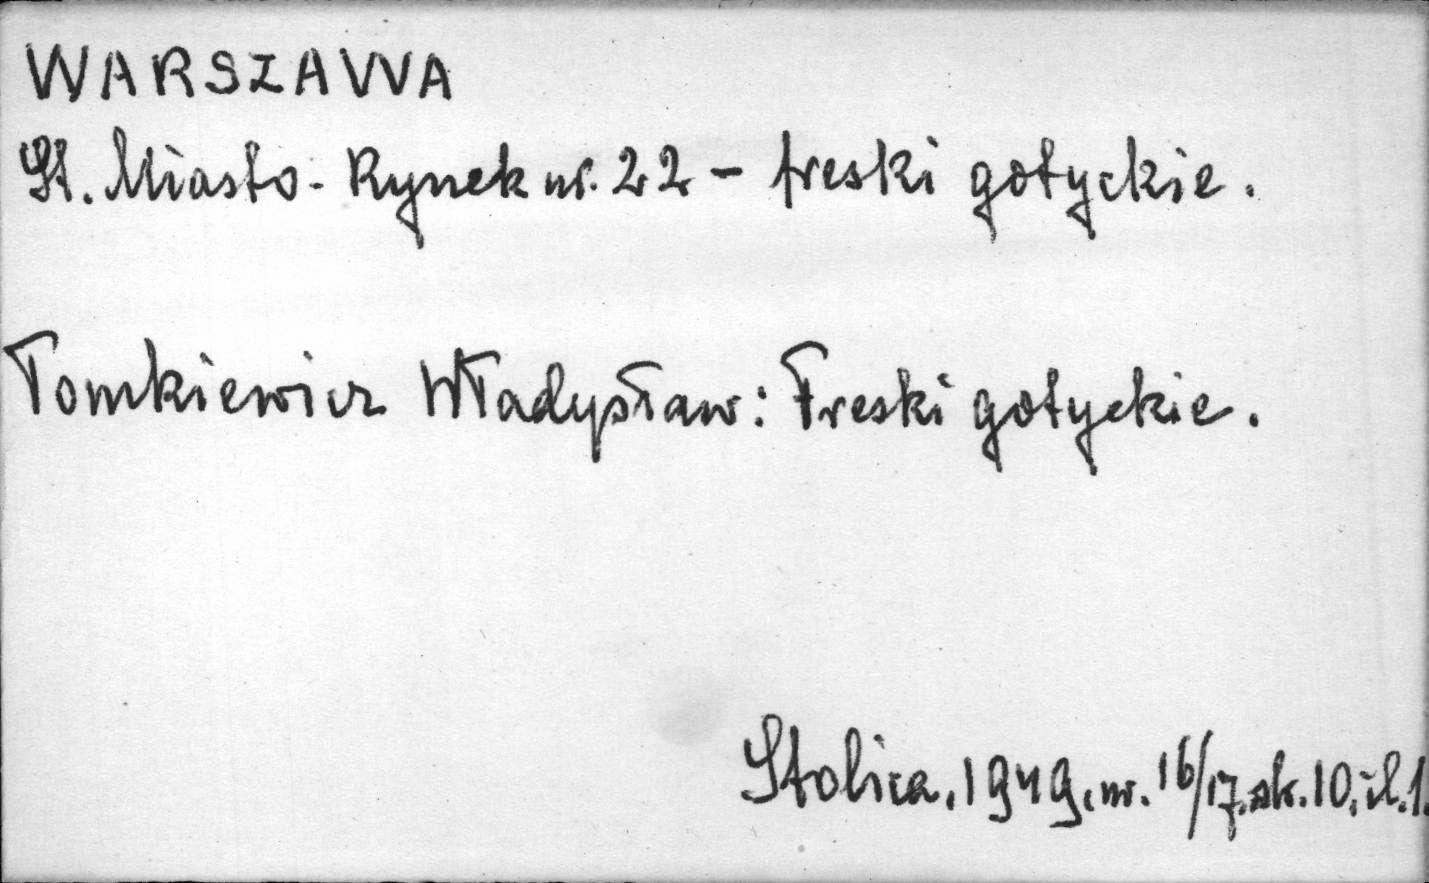 WARSZAWA
St. Miasto - Rynek nr. 22 - freski gotyckie.
Tomkiewicz Władysław: Freski gotyckie.
Stolica, 1949, nr. 16/17. str. 10, il. 1.